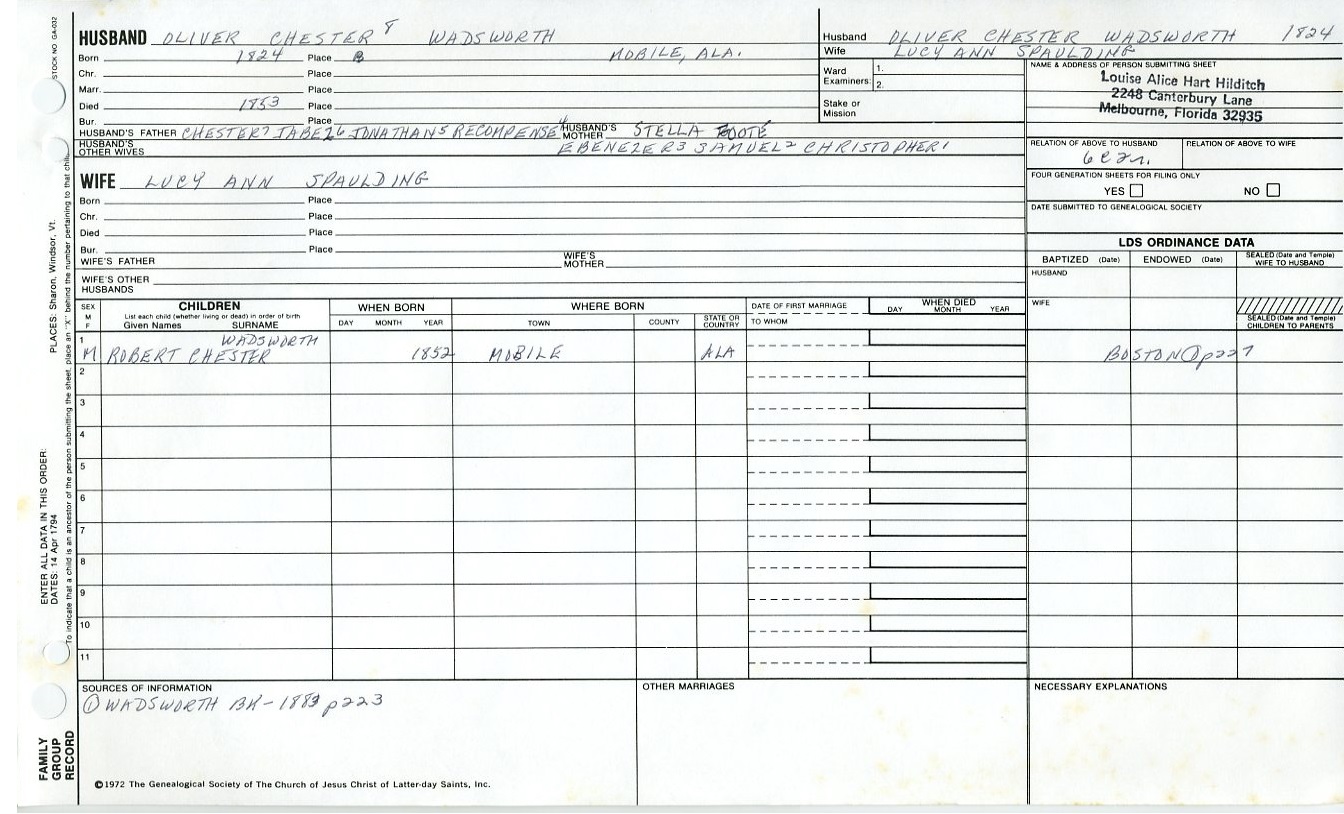 STOCK NO. GA-032
HUSBAND OLIVER CHESTER 8 WADSWORTH
Born 1824 Place MOBILE, ALA.
Chr. Place
Marr. Place
Died 1853 Place
Bur. Place
HUSBAND'S FATHER CHESTER7 JABEZ6 JONATHAN5 RECOMPENSE4 HUSBAND'S MOTHER STELLA FOOTE
HUSBAND'S OTHER WIVES EBENEZER3 SAMUEL2 CHRISTOPHER1
Husband OLIVER CHESTER WADSWORTH 1824
Wife LUCY ANN SPAULDING
Ward Examiners: 1.
2.
Stake or Mission
NAME & ADDRESS OF PERSON SUBMITTING SHEET
Louise Alice Hart Hilditch
2248 Canterbury Lane
Melbourne, Florida 32935
RELATION OF ABOVE TO HUSBAND RELATION OF ABOVE TO WIFE
FOUR GENERATION SHEETS FOR FILING ONLY
YES NO
DATE SUBMITTED TO GENEALOGICAL SOCIETY
WIFE LUCY ANN SPAULDING
Born Place
Chr. Place
Died Place
Bur. Place
WIFE'S FATHER WIFE'S MOTHER
WIFE'S OTHER HUSBANDS
LDS ORDINANCE DATA
BAPTIZED (Date) ENDOWED (Date) SEALED (Date and Temple) WIFE TO HUSBAND
HUSBAND
WIFE
SEALED (Date and Temple) CHILDREN TO PARENTS
SEX M F
CHILDREN
List each child (whether living or dead) in order of birth
Given Names SURNAME
WHEN BORN
DAY MONTH YEAR
WHERE BORN
TOWN COUNTY STATE OR COUNTRY
DATE OF FIRST MARRIAGE
TO WHOM
WHEN DIED
DAY MONTH YEAR
1 WADSWORTH
M ROBERT CHESTER 1852 MOBILE ALA BOSTON ① p227
2
3
4
5
6
7
8
9
10
11
SOURCES OF INFORMATION
① WADSWORTH BK - 1883 p223
OTHER MARRIAGES
NECESSARY EXPLANATIONS
©1972 The Genealogical Society of The Church of Jesus Christ of Latter-day Saints, Inc.
FAMILY GROUP RECORD
ENTER ALL DATA IN THIS ORDER:
DATES: 14 Apr 1794
PLACES: Sharon, Windsor, Vt.
To indicate that a child is an ancestor of the person submitting the sheet, place an "X" behind the number pertaining to that child